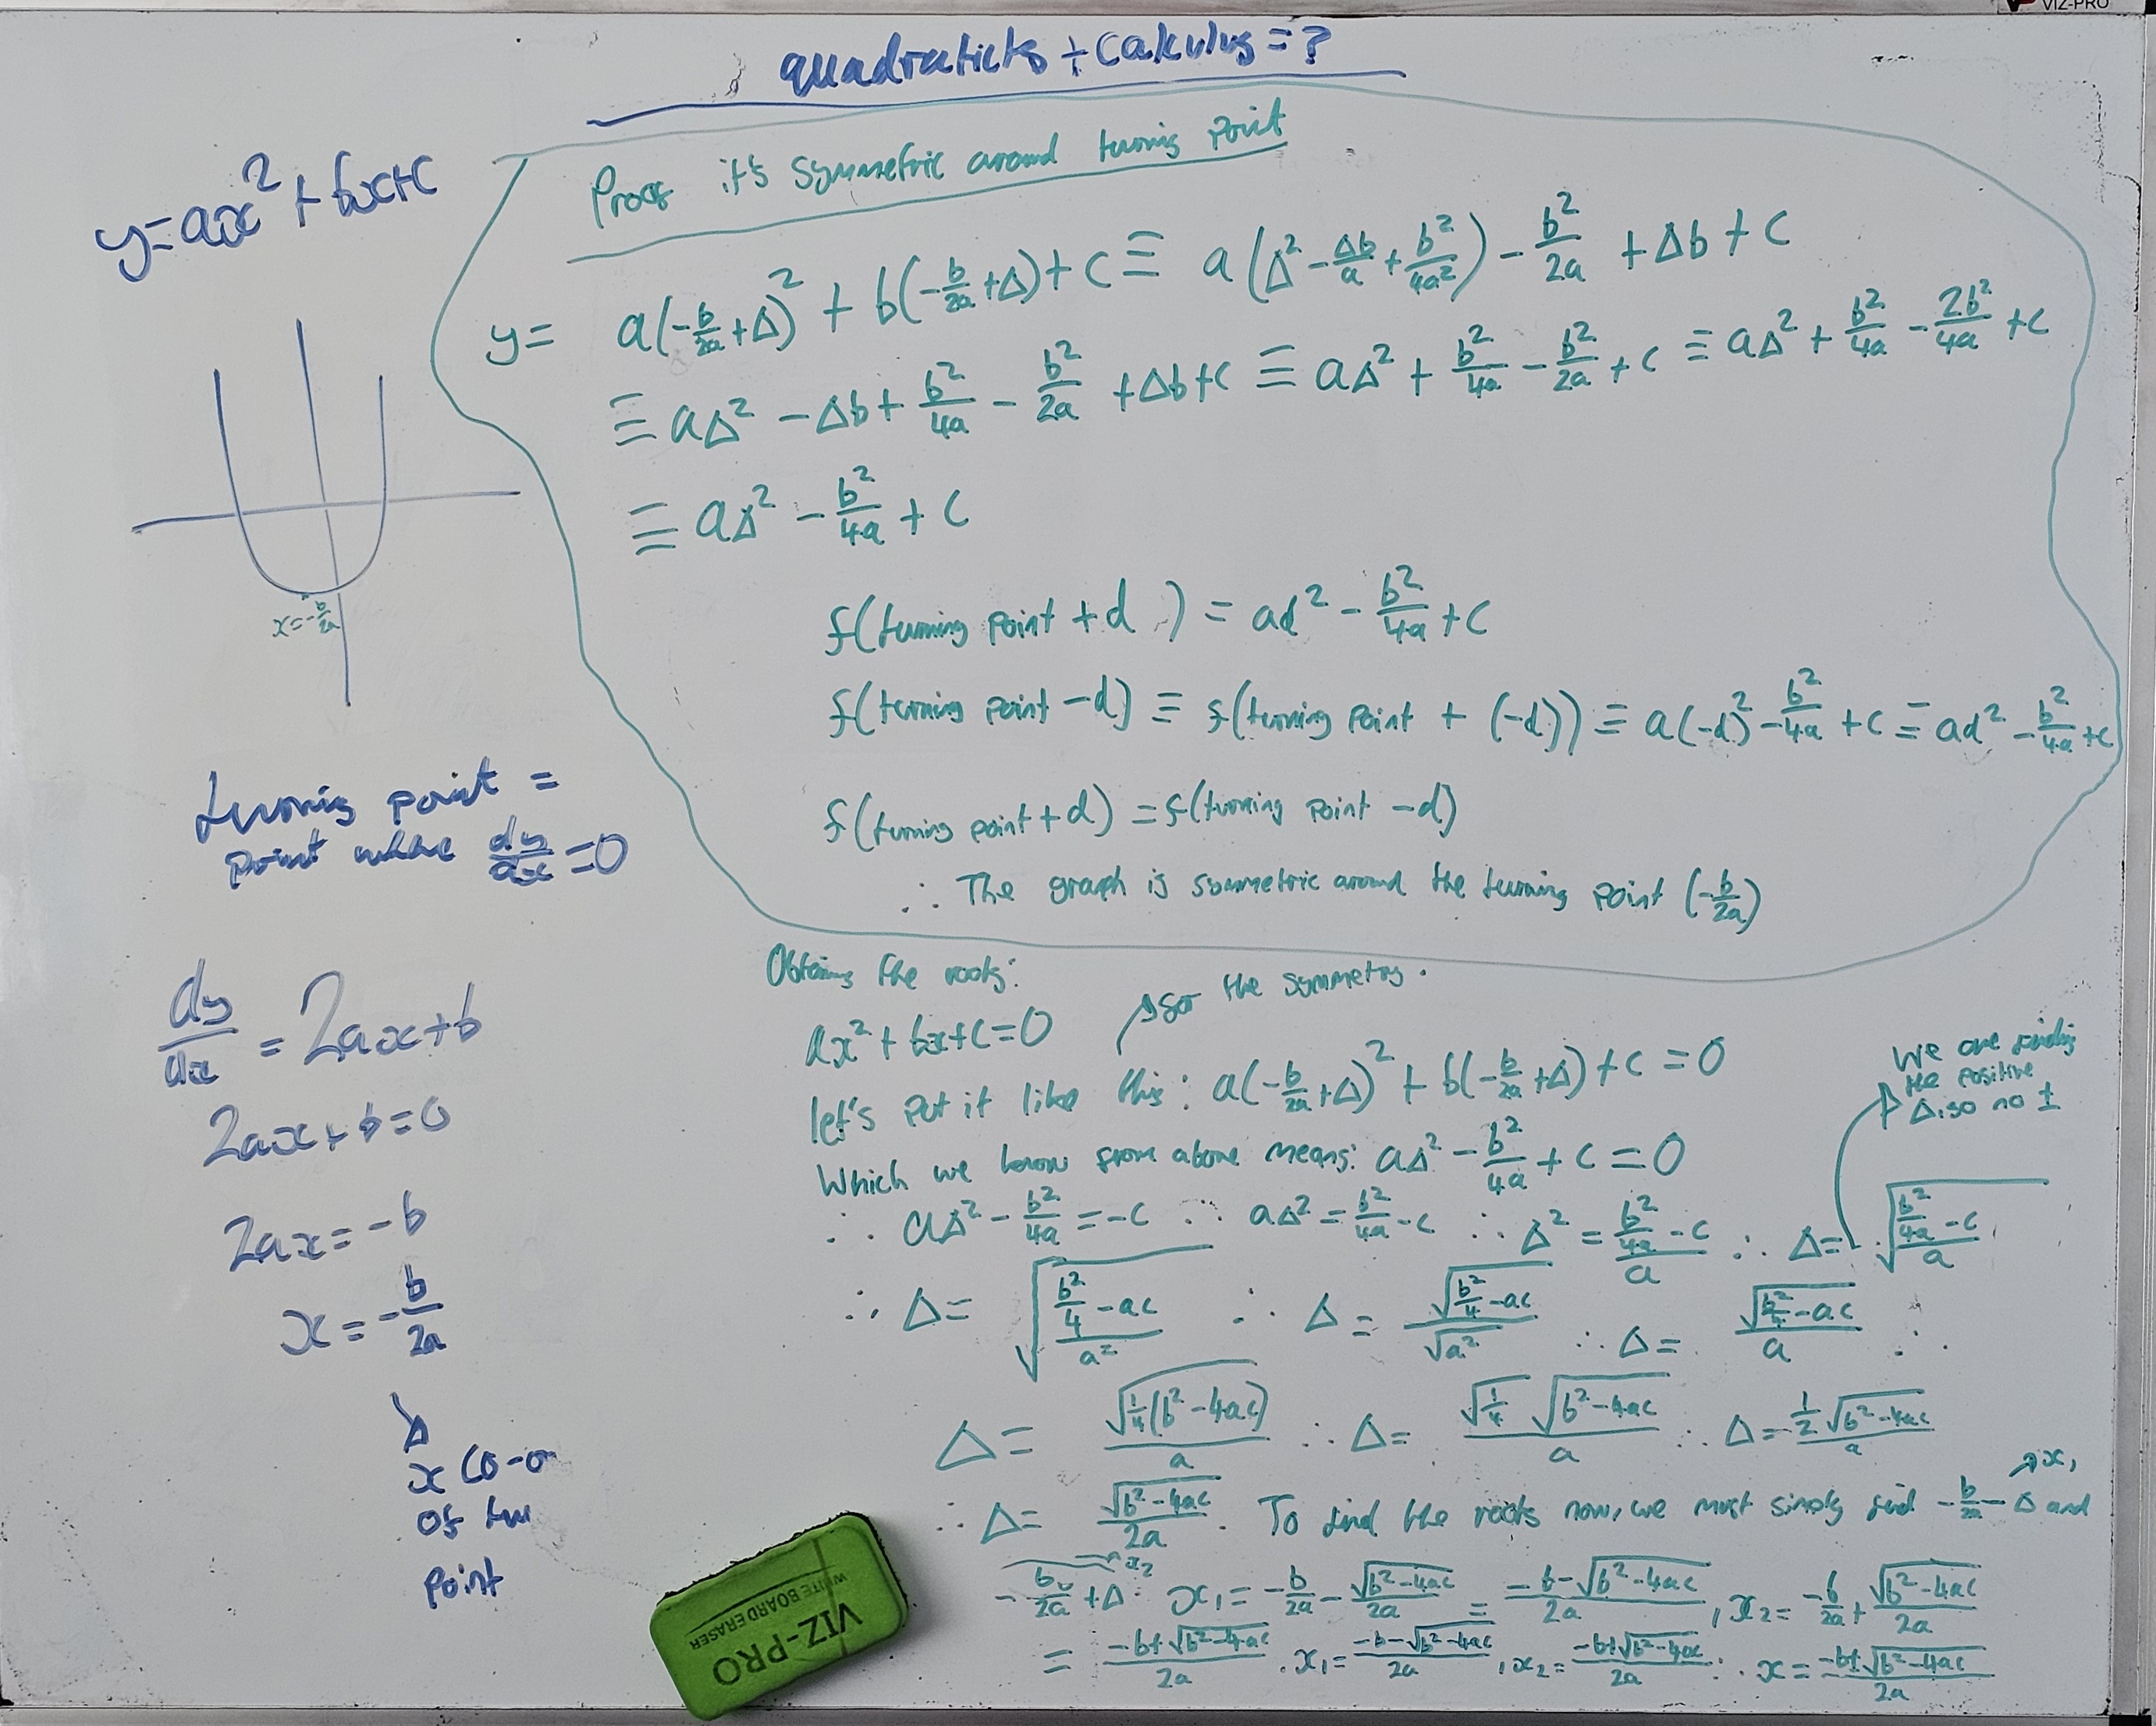 VIZ-PRO
quadraticks + calculus = ?
y = ax² + bx + c
x = -b/2a
turning point =
point where dy/dx = 0
dy/dx = 2ax + b
2ax + b = 0
2ax = -b
x = -b/2a
x co-o
of tu
point
Proof it's symmetric around turning point
y = a(-b/2a + Δ)² + b(-b/2a + Δ) + c ≡ a(Δ² - Δb/a + b²/4a²) - b²/2a + Δb + c
≡ aΔ² - Δb + b²/4a - b²/2a + Δb + c ≡ aΔ² + b²/4a - b²/2a + c ≡ aΔ² + b²/4a - 2b²/4a + c
≡ aΔ² - b²/4a + c
f(turning point + d) = ad² - b²/4a + c
f(turning point - d) ≡ f(turning point + (-d)) ≡ a(-d)² - b²/4a + c ≡ ad² - b²/4a + c
f(turning point + d) = f(turning point - d)
∴ The graph is symmetric around the turning point (-b/2a)
the roots:
for the symmetry.
ax² + bx + c = 0
let's put it like this: a(-b/2a + Δ)² + b(-b/2a + Δ) + c = 0
We are finding
the positive
Δ, so no ±
Which we know from above means: aΔ² - b²/4a + c = 0
∴ aΔ² - b²/4a = -c ∴ aΔ² = b²/4a - c ∴ Δ² = (b²/4a - c)/a ∴ Δ = √((b²/4a - c)/a)
∴ Δ = √((b²/4 - ac)/a²) ∴ Δ = √(b²/4 - ac)/√a² ∴ Δ = √(b²/4 - ac)/a ∴
Δ = √(¼(b² - 4ac))/a ∴ Δ = √¼ √(b² - 4ac)/a ∴ Δ = ½√(b² - 4ac)/a
x₁
∴ Δ = √(b² - 4ac)/2a. To find the roots now, we must simply find -b/2a - Δ and
x₂
-b/2a + Δ. x₁ = -b/2a - √(b² - 4ac)/2a = (-b - √(b² - 4ac))/2a, x₂ = -b/2a + √(b² - 4ac)/2a
= (-b + √(b² - 4ac))/2a. x₁ = (-b - √(b² - 4ac))/2a, x₂ = (-b + √(b² - 4ac))/2a ∴ x = (-b ± √(b² - 4ac))/2a
VIZ-PRO
WHITE BOARD ERASER